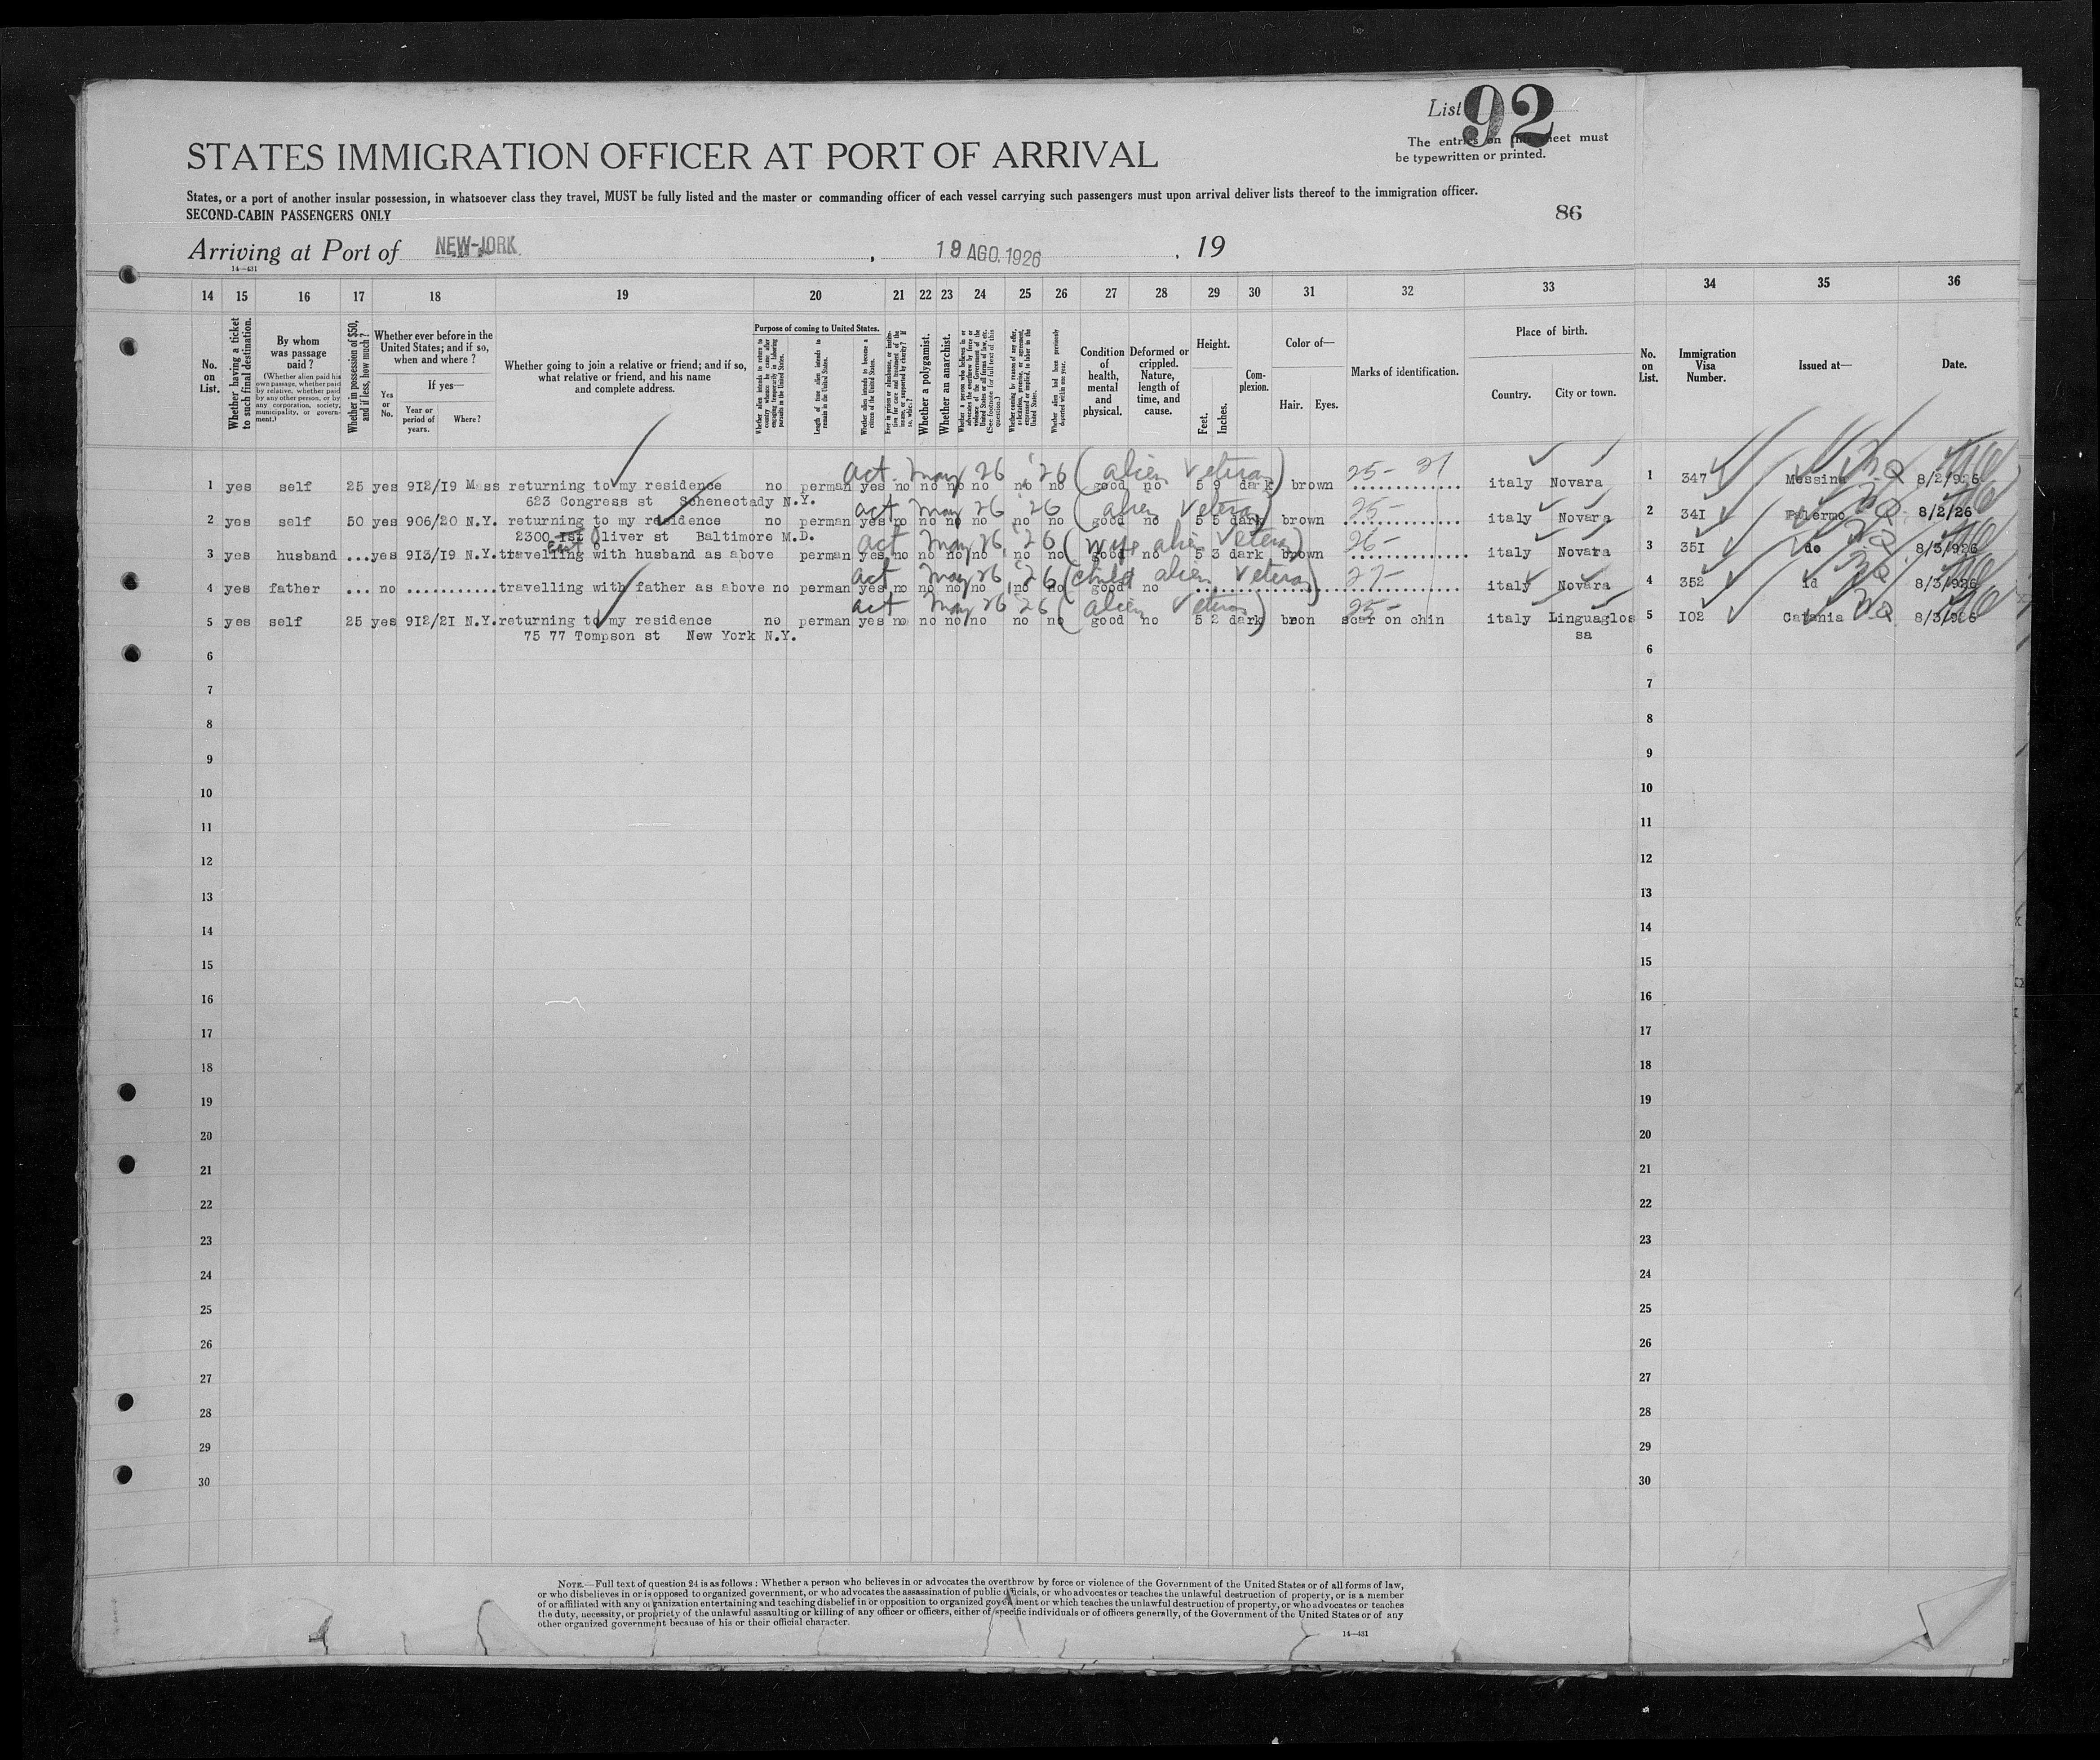 List 92
The entries on this sheet must
be typewritten or printed.
STATES IMMIGRATION OFFICER AT PORT OF ARRIVAL
States, or a port of another insular possession, in whatsoever class they travel, MUST be fully listed and the master or commanding officer of each vessel carrying such passengers must upon arrival deliver lists thereof to the immigration officer.
SECOND-CABIN PASSENGERS ONLY
86
Arriving at Port of NEW-YORK, 18 AGO. 1926, 19
14—431
14 15 16 17 18 19 20 21 22 23 24 25 26 27 28 29 30 31 32 33 34 35 36
No. on List.
Whether having a ticket to such final destination.
By whom was passage paid?
(Whether alien paid his own passage, whether paid by relative, whether paid by any other person, or by any corporation, society, municipality, or government.)
Whether in possession of $50, and if less, how much?
Whether ever before in the United States; and if so, when and where?
Yes or No.
If yes—
Year or period of years.
Where?
Whether going to join a relative or friend; and if so, what relative or friend, and his name and complete address.
Purpose of coming to United States.
Whether alien intends to return to country whence he came after engaging temporarily in laboring pursuits in the United States.
Length of time alien intends to remain in the United States.
Whether alien intends to become a citizen of the United States.
Ever in prison or almshouse, or institution for care and treatment of the insane, or supported by charity? If so, which?
Whether a polygamist.
Whether an anarchist.
(See footnote for full text of this question.)
Whether coming by reason of any offer, solicitation, promise, or agreement, expressed or implied, to labor in the United States.
Whether alien had been previously deported within one year.
Condition of health, mental and physical.
Deformed or crippled. Nature, length of time, and cause.
Height.
Feet. Inches.
Complexion.
Color of—
Hair. Eyes.
Marks of identification.
Place of birth.
Country. City or town.
No. on List.
Immigration Visa Number.
Issued at—
Date.
act. May 26 '26 (alien Veteran) 25- 27
1 yes self 25 yes 9I2/I9 Mass returning to my residence no perman yes no no no no no no good no 5 9 dark brown .............. italy Novara 1 347 Messina 8/2/926
623 Congress st Schenectady N.Y.
act May 26 '26 (alien Veteran) 25-
2 yes self 50 yes 906/20 N.Y. returning to my residence no perman yes no no no no no no good no 5 5 dark brown .............. italy Novara 2 34I Palermo 8/2/26
2300 Ist Oliver st Baltimore M.D.
East
act May 26, '26 (wife alien Veteran) 26-
3 yes husband ... yes 9I3/I9 N.Y. travelling with husband as above perman yes no no no no no no good no 5 3 dark brown .............. italy Novara 3 35I do 8/3/926
act May 26 '26 (child alien Veteran) 27-
4 yes father ... no ........... travelling with father as above no perman yes no no no no no no good no .............. italy Novara 4 352 id 8/3/926
act May 26 '26 (alien Veteran) 25-
5 yes self 25 yes 9I2/2I N.Y. returning to my residence no perman yes no no no no no no good no 5 2 dark bron scar on chin italy Linguaglos 5 I02 Catania 8/3/926
75 77 Tompson st New York N.Y. sa
6 6
7 7
8 8
9 9
10 10
11 11
12 12
13 13
14 14
15 15
16 16
17 17
18 18
19 19
20 20
21 21
22 22
23 23
24 24
25 25
26 26
27 27
28 28
29 29
30 30
NOTE.—Full text of question 24 is as follows: Whether a person who believes in or advocates the overthrow by force or violence of the Government of the United States or of all forms of law,
or who disbelieves in or is opposed to organized government, or who advocates the assassination of public officials, or who advocates or teaches the unlawful destruction of property, or is a member
of or affiliated with any organization entertaining and teaching disbelief in or opposition to organized government or which teaches the unlawful destruction of property, or who advocates or teaches
the duty, necessity, or propriety of the unlawful assaulting or killing of any officer or officers, either of specific individuals or of officers generally, of the Government of the United States or of any
other organized government because of his or their official character.
14—431